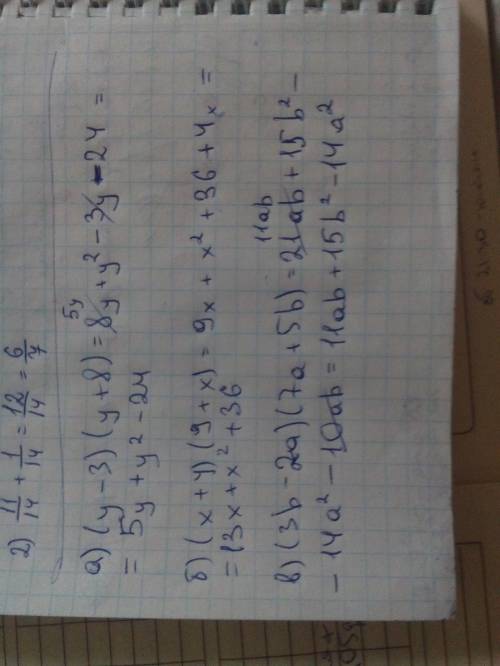 2) 11/14 + 1/14 = 12/14 = 6/7
а) (y - 3)(y + 8) = 8y + y² - 3y - 24 =
5y
= 5y + y² - 24
б) (x + 4)(9 + x) = 9x + x² + 36 + 4x =
= 13x + x² + 36
в) (3b - 2a)(7a + 5b) = 21ab + 15b² -
11ab
- 14a² - 10ab = 11ab + 15b² - 14a²